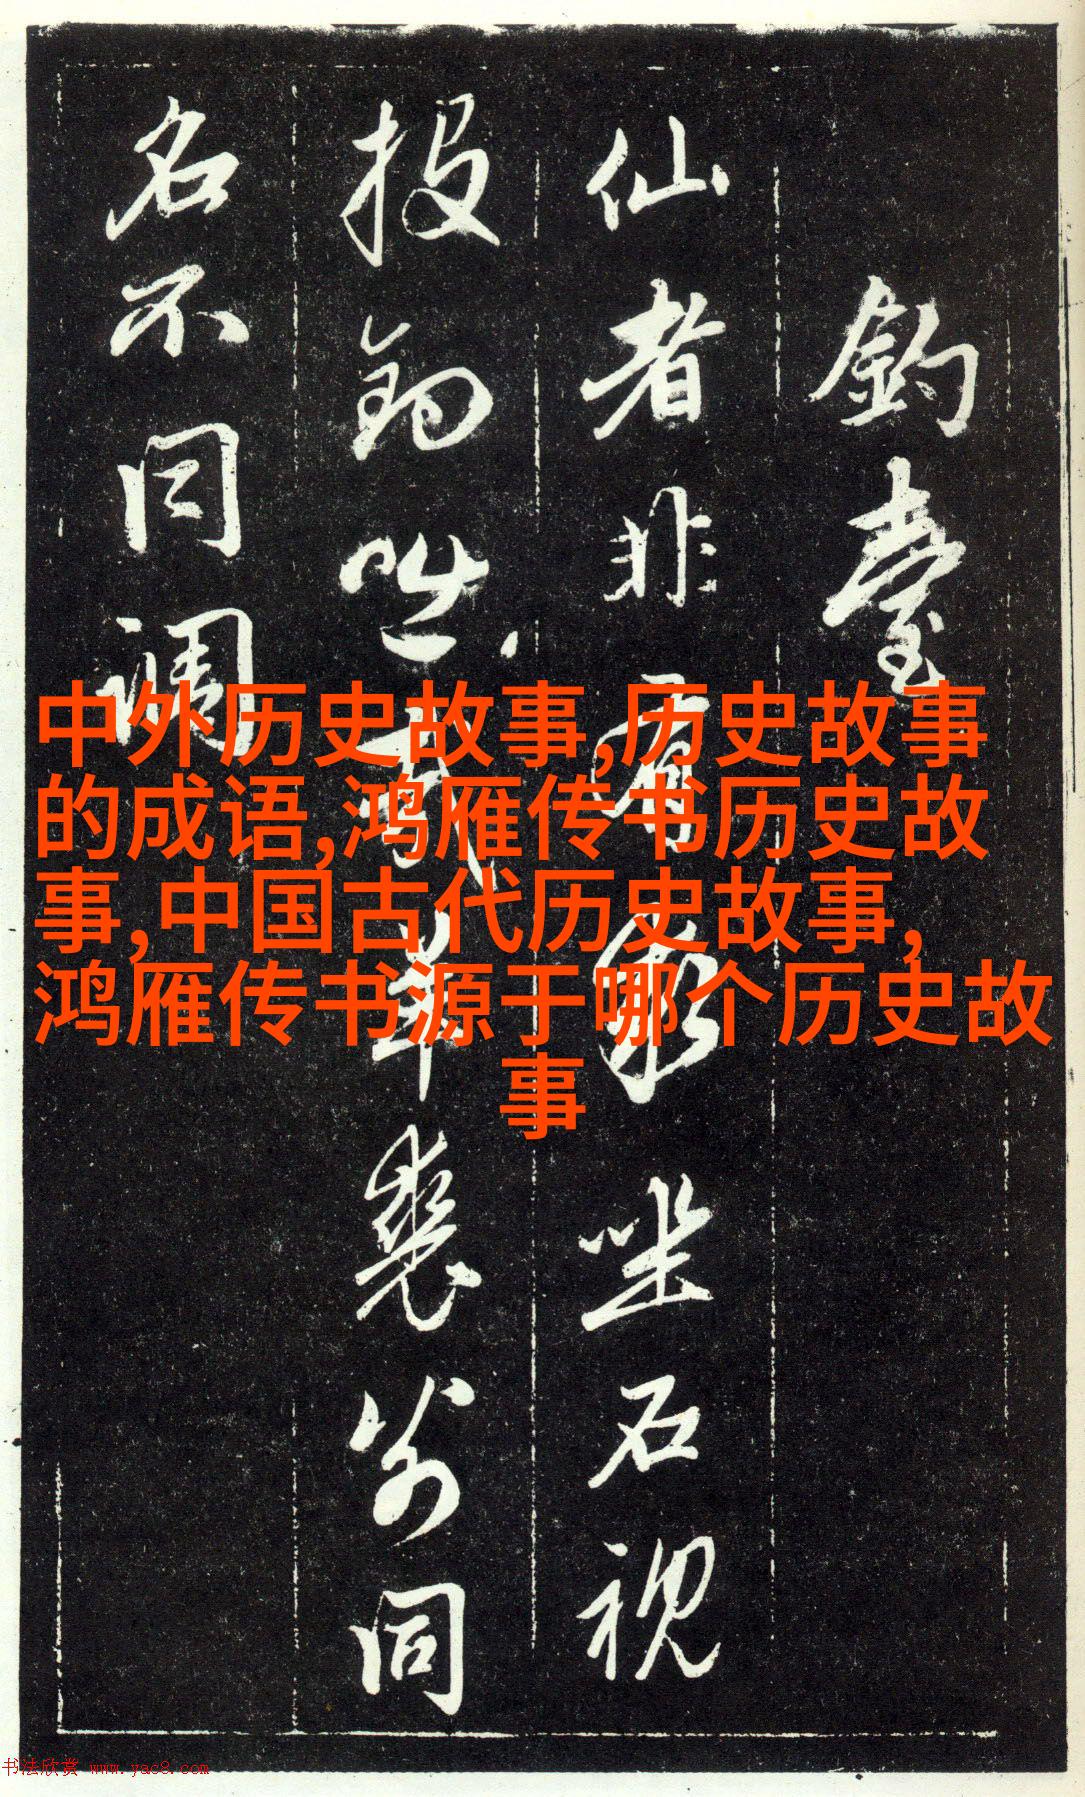 釣臺
仙者非有坐石視
投鈎咄哉羊裘同
名不同調
中外历史故事,历史故事
的成语,鸿雁传书历史故
事,中国古代历史故事,
鸿雁传书源于哪个历史故
事
书法欣赏 www.yac8.com